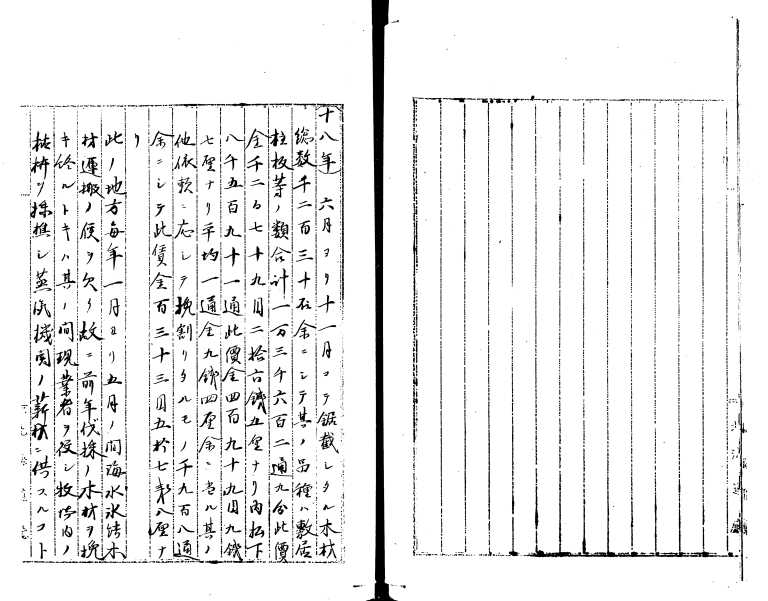 十八年六月ヨリ十一月マテ鋸截シタル木材
総数千二百三十石余ニシテ其ノ品種ハ敷居
柱板等ノ類合計一万三千六百二通九分此價
金千二百七十九円二拾六銭五厘ナリ内払下
八千五百九十一通此價金四百九十九円九銭
七厘ナリ平均一通金九銭四厘余ニ当ル其ノ
他依頼ニ応シテ挽割リタルモノ千九百八通
余ニシテ此賃金百三十三円五拾七銭八厘ナ
リ
此ノ地方毎年一月ヨリ五月ノ間海水氷結木
材運搬ノ便ヲ欠ク故ニ前年伐採ノ木材ヲ挽
キ終ルトキハ其ノ間現業者ヲ役シ牧場内ノ
枯幹ヲ採樵シ蒸気機関ノ薪材ニ供スルコト